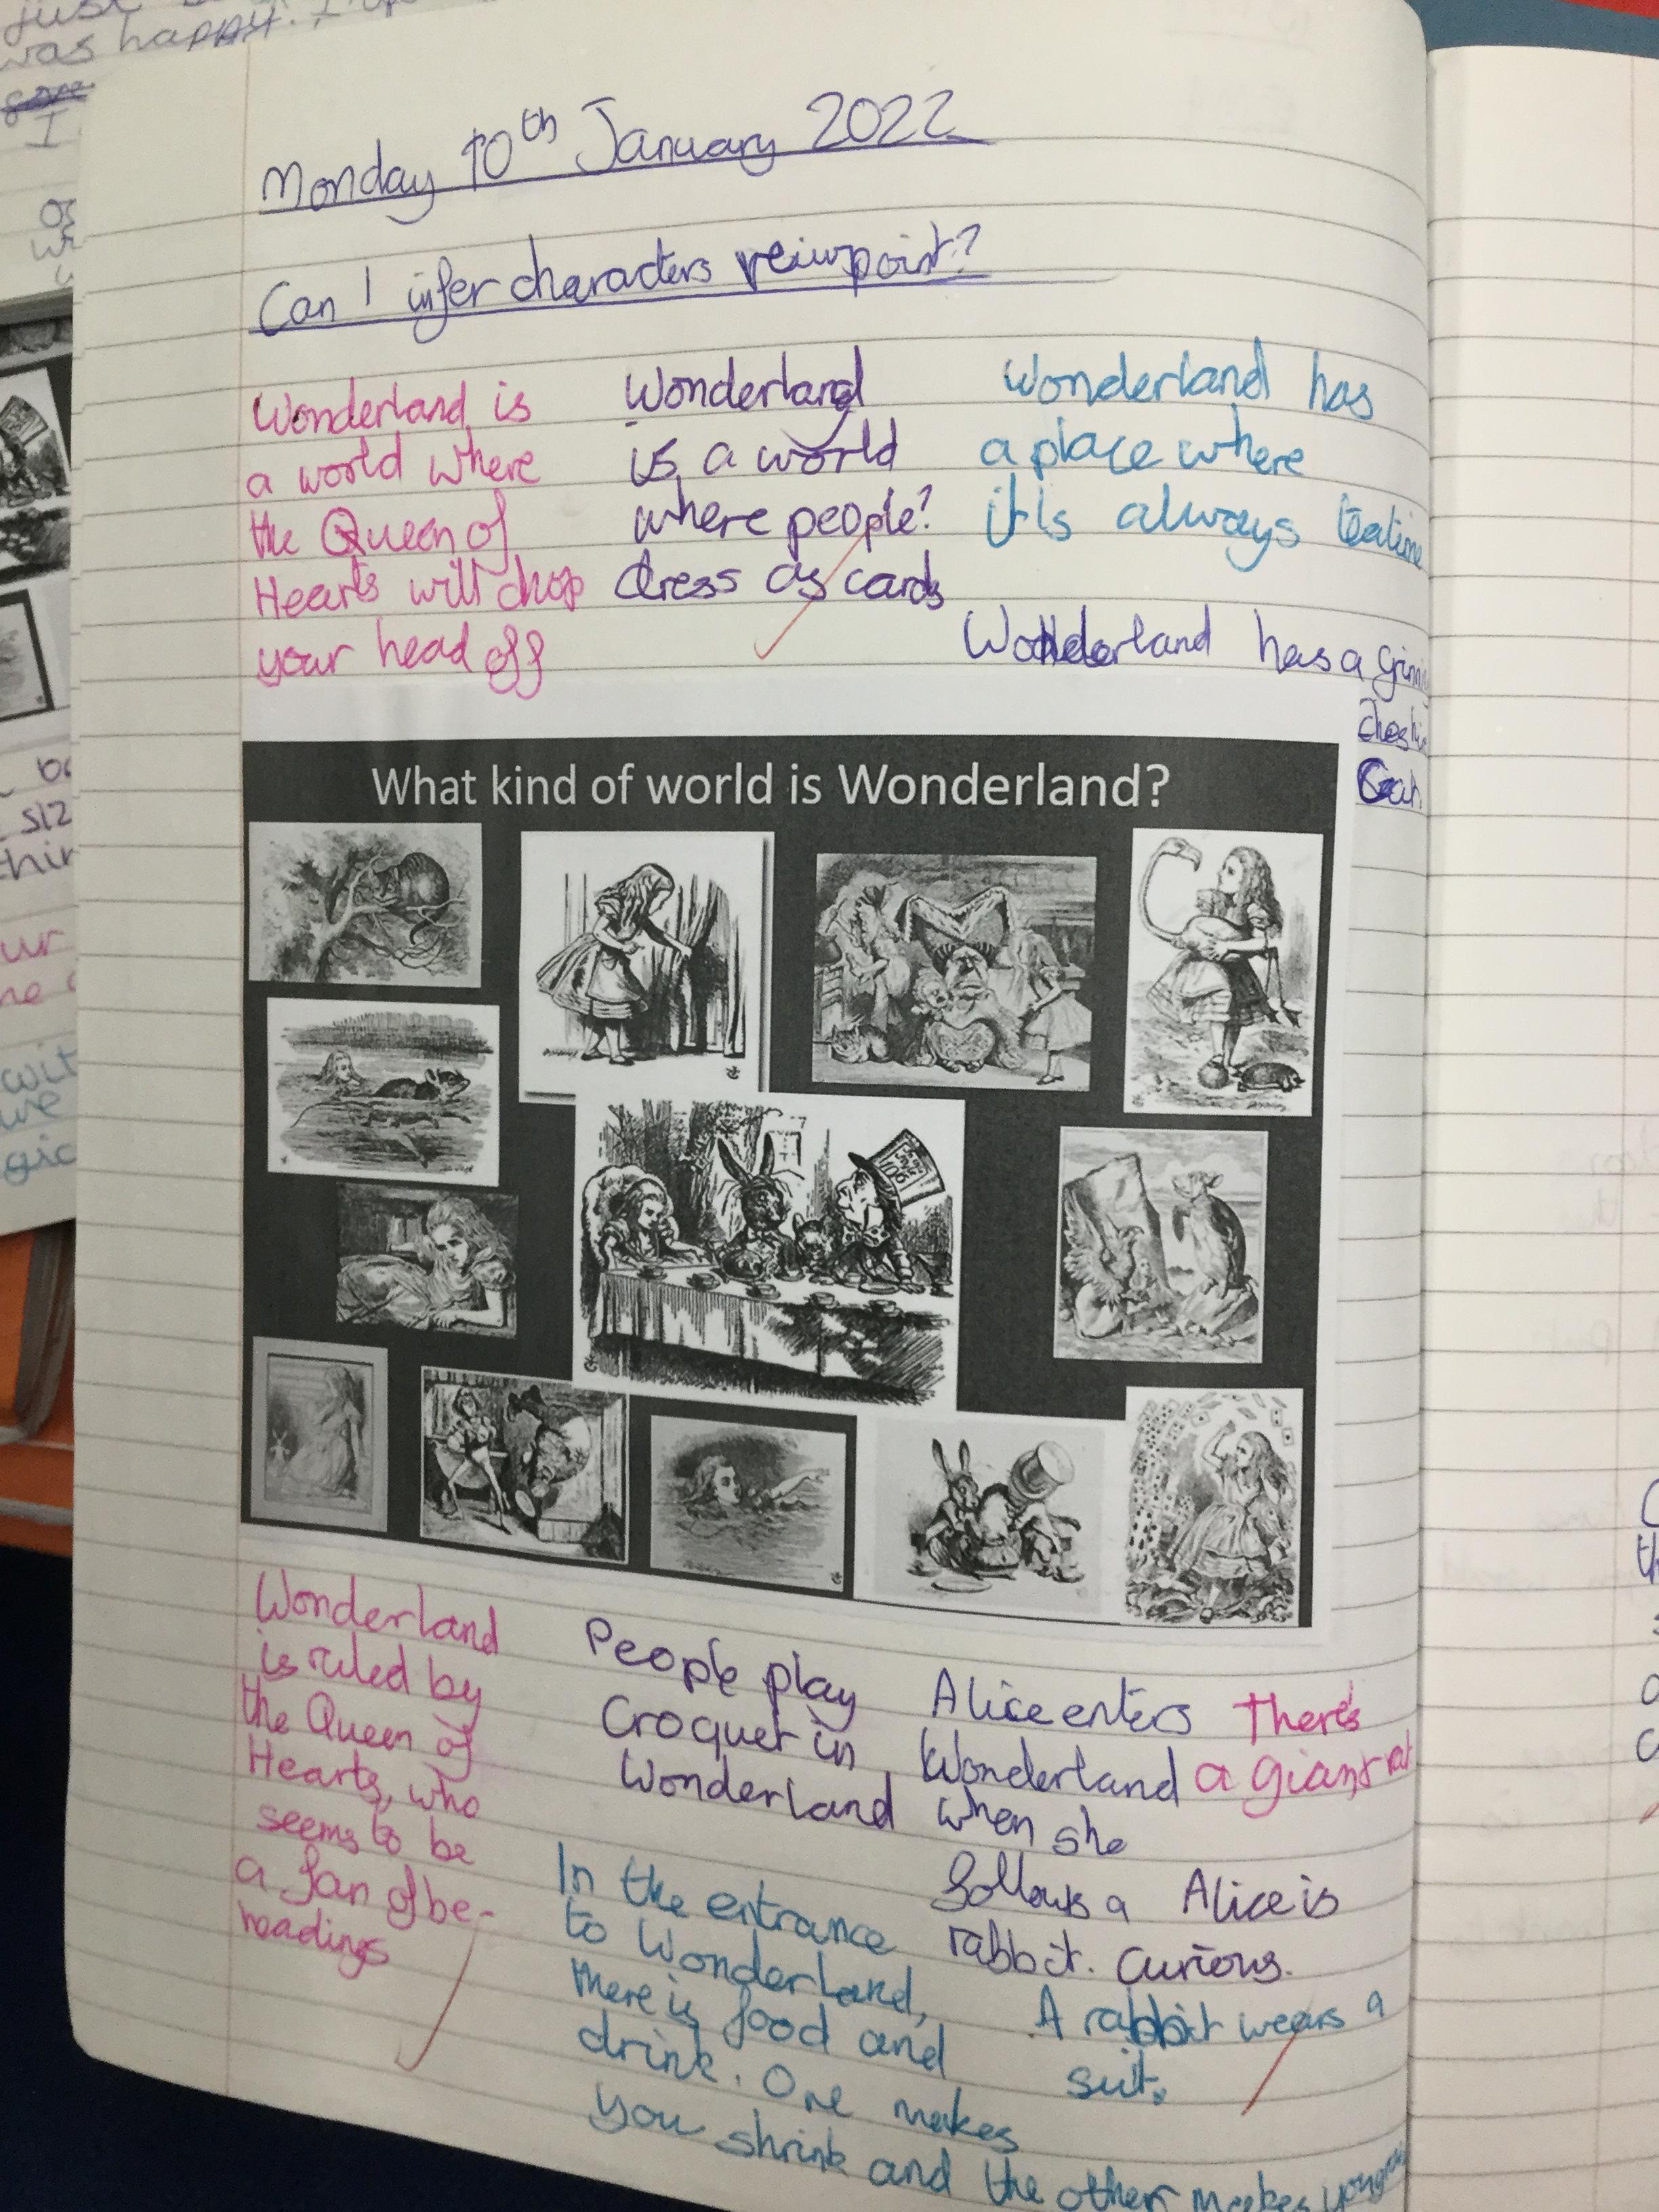 just
was happy. I
I
Monday 10th January 2022
Can I infer characters veiwpoint?
Wonderland is
a world where
the Queen of
Hearts will chop
your head off
Wonderland
is a world
where people?
dress as cards
Wonderland has
a place where
it is always teatime
Wonderland has a
Cat
What kind of world is Wonderland?
Wonderland
is ruled by
the Queen of
Hearts, who
seems to be
a fan of be-
headings
People play
Croquet in
Wonderland
In the entrance
to Wonderland,
there is food and
drink. One makes
you shrink and the other makes
Alice enters
Wonderland
when she
follows a
rabbit.
There's
a giant rat
Alice is
Curious.
A rabbit wears a
suit.